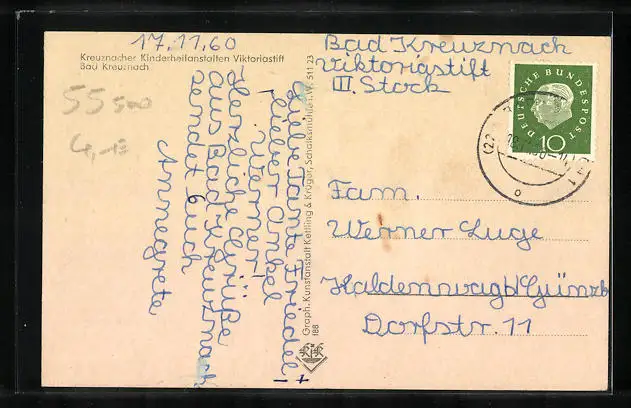 17.11.60
Kreuznacher Kinderheilanstalten Viktoriastift
Bad Kreuznach
55500
4,-
Liebe Tante Friedel +
lieber Onkel
Werner!
Herzliche Grüße
aus Bad Kreuznach
sendet Euch
Annegrete
Graph. Kunstanstalt Kettling & Krüger, Schalksmühle i. W. 511 23
188
K&K
Bad Kreuznach
Viktoriastift
III. Stock
DEUTSCHE BUNDESPOST
10
Fam.
Werner Luge
Haldenwag b/ Günzb
Dorfstr. 11